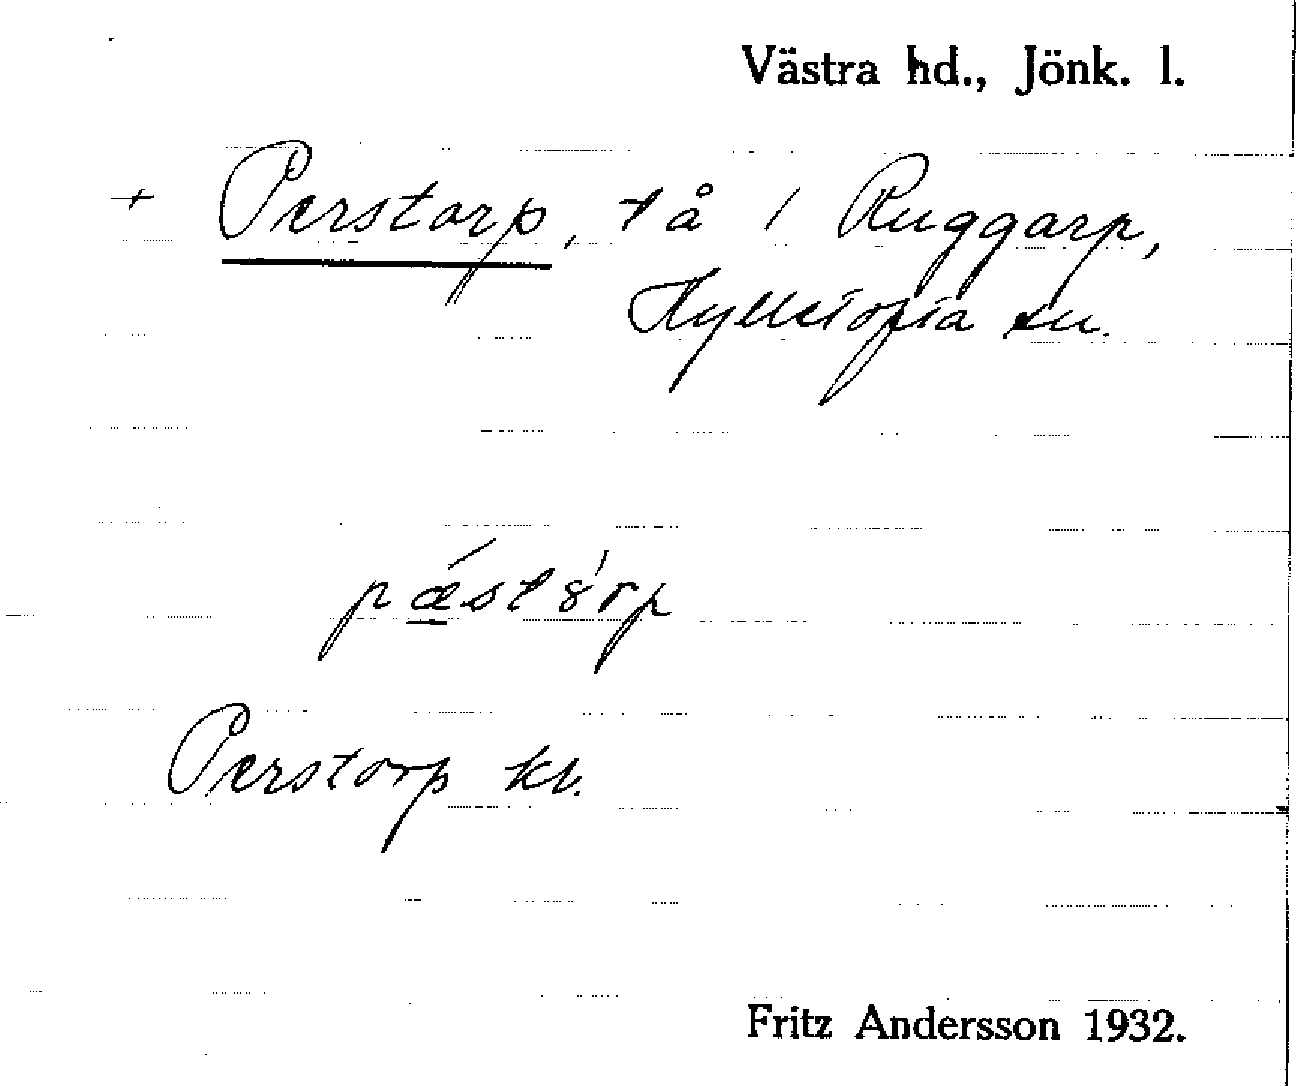 Västra hd., Jönk. l.
+ Perstorp, tå i Ruggarp,
Hylletofta sn.
pǽstórp
Perstorp kr.
Fritz Andersson 1932.